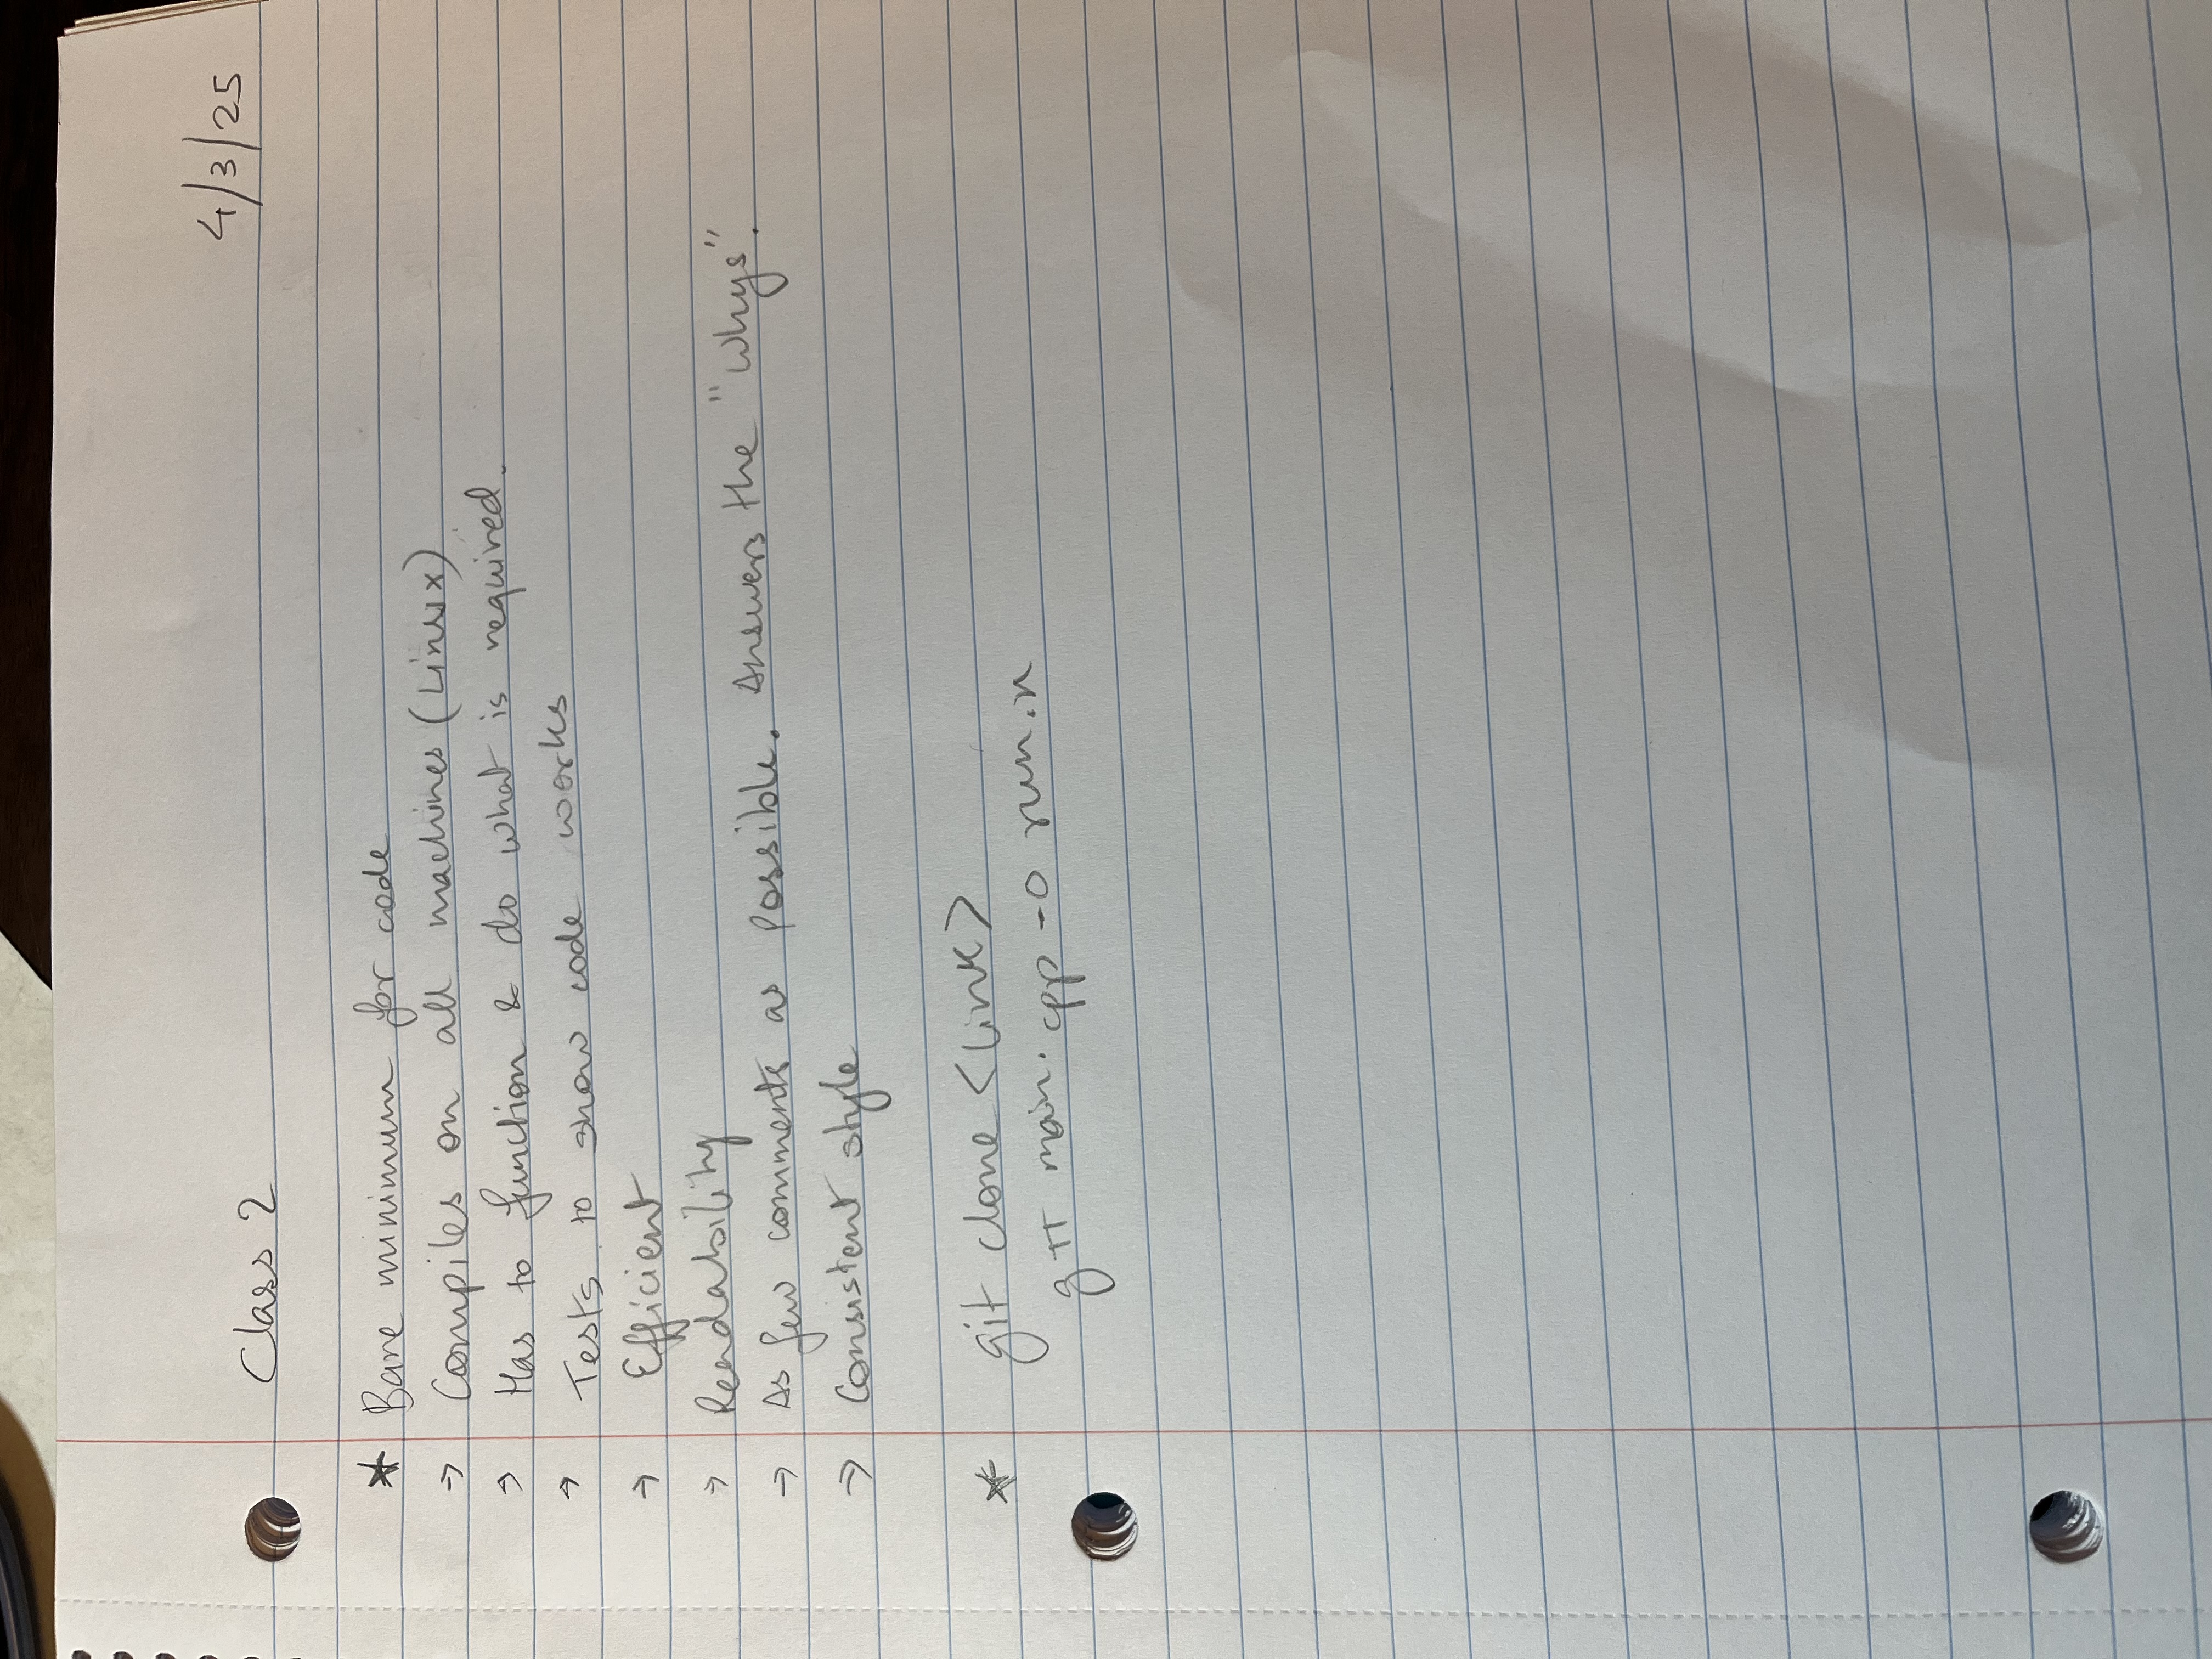 4/3/25
Class 2
* Bare minimum for code
→ Compiles on all machines (Linux)
→ Has to function & do what is required.
→ Tests to show code works
→ Efficient
→ Readability
→ As few comments as possible. Answers the "Whys".
→ Consistent style
* git clone <link>
g++ main.cpp -o run.x